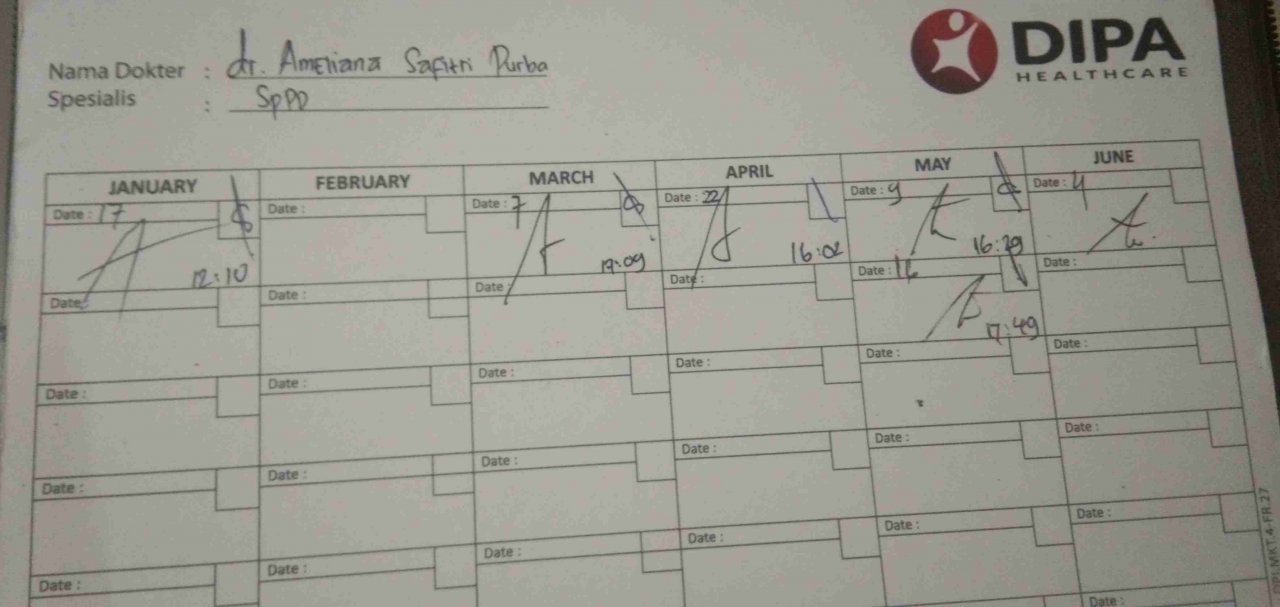 DIPA
HEALTHCARE
Nama Dokter : dr. Ameliana Safitri Purba
Spesialis : SpPD
JANUARY FEBRUARY MARCH APRIL MAY JUNE
Date : 17 Date : Date : 7 Date : 22 Date : 9 Date : 4
12:10 17:09 16:02 16:29
Date : Date : Date : Date : Date : 16 Date :
17:49
Date : Date : Date : Date : Date : Date :
Date : Date : Date : Date : Date : Date :
Date : Date : Date : Date : Date : Date :
Date :